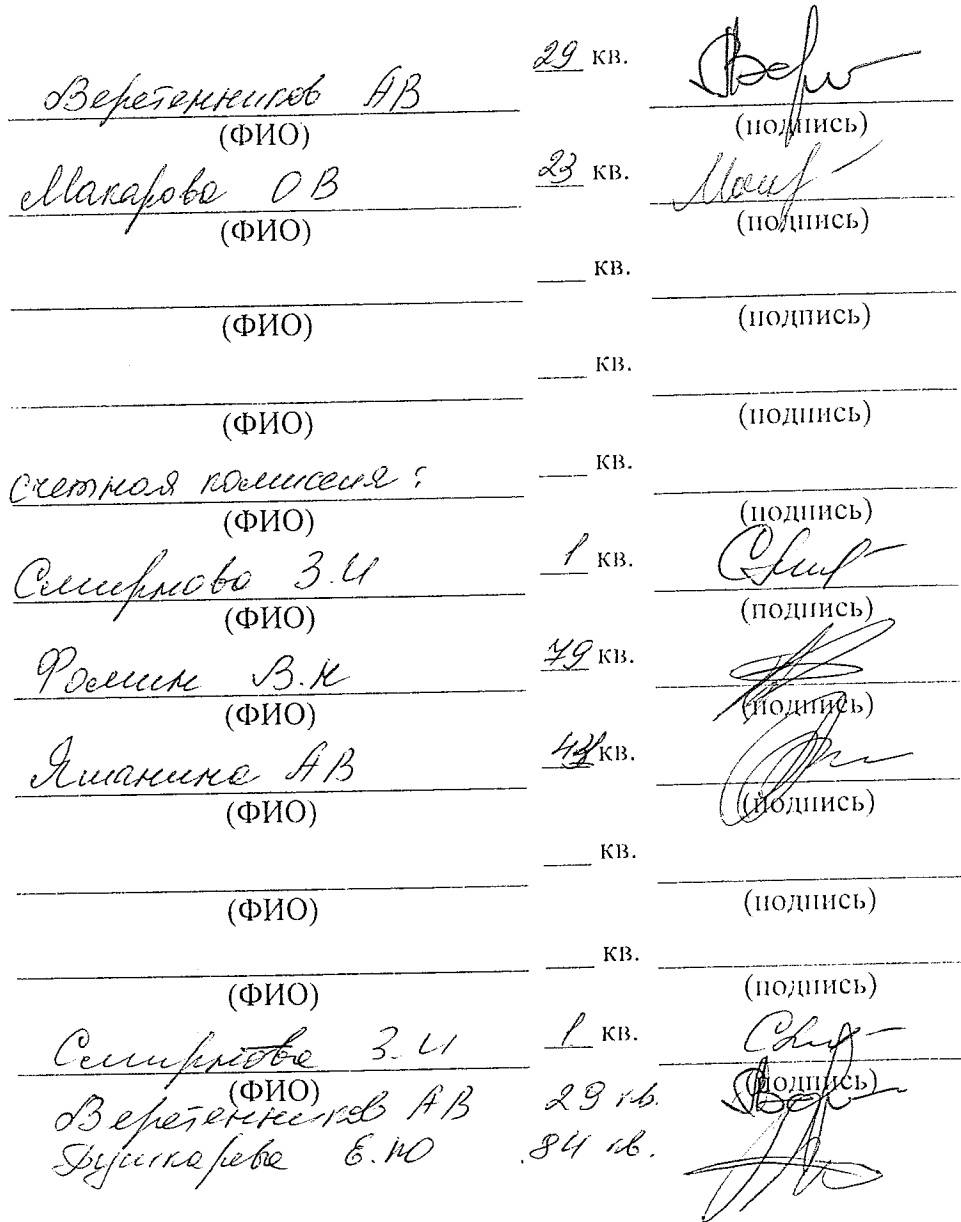 Веретенников АВ 29 кв.
(ФИО) (подпись)
Макарова ОВ 23 кв.
(ФИО) (подпись)
кв.
(ФИО) (подпись)
кв.
(ФИО) (подпись)
счетная комиссия: кв.
(ФИО) (подпись)
Смирнова З.И 1 кв.
(ФИО) (подпись)
Фомин В.Н 79 кв.
(ФИО) (подпись)
Яшанина АВ кв.
(ФИО) (подпись)
кв.
(ФИО) (подпись)
кв.
(ФИО) (подпись)
Смирнова З.И 1 кв.
(ФИО) (подпись)
Веретенников АВ 29 кв.
Пушкарева Е.Ю 84 кв.